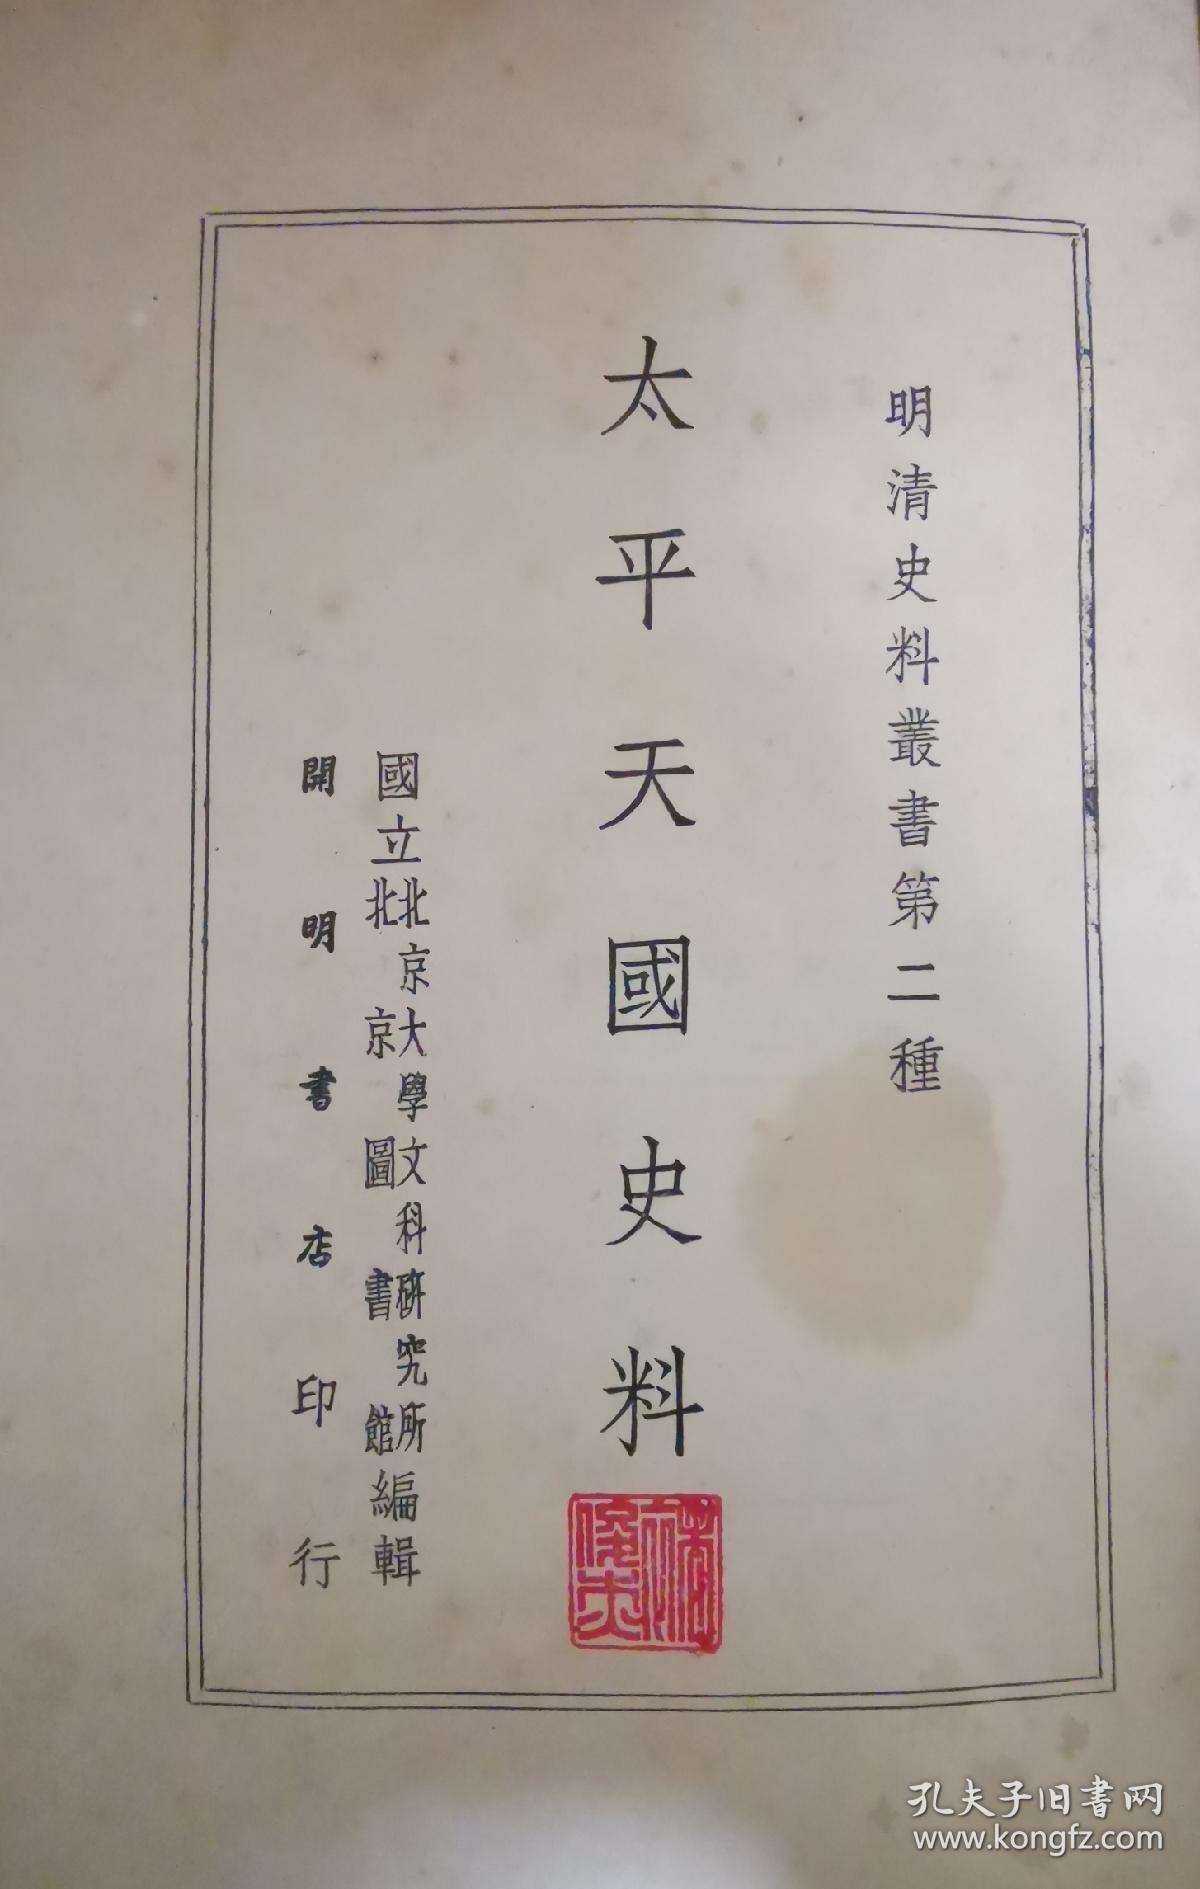 明清史料叢書第二種
太平天國史料
國立北京大學文科研究所
北京圖書館編輯
開明書店印行
孔夫子旧书网
www.kongfz.com